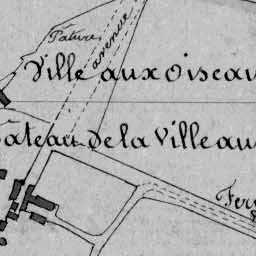 Pature
avenue
Ville aux Oiseau
âteau De la Ville au
Fer